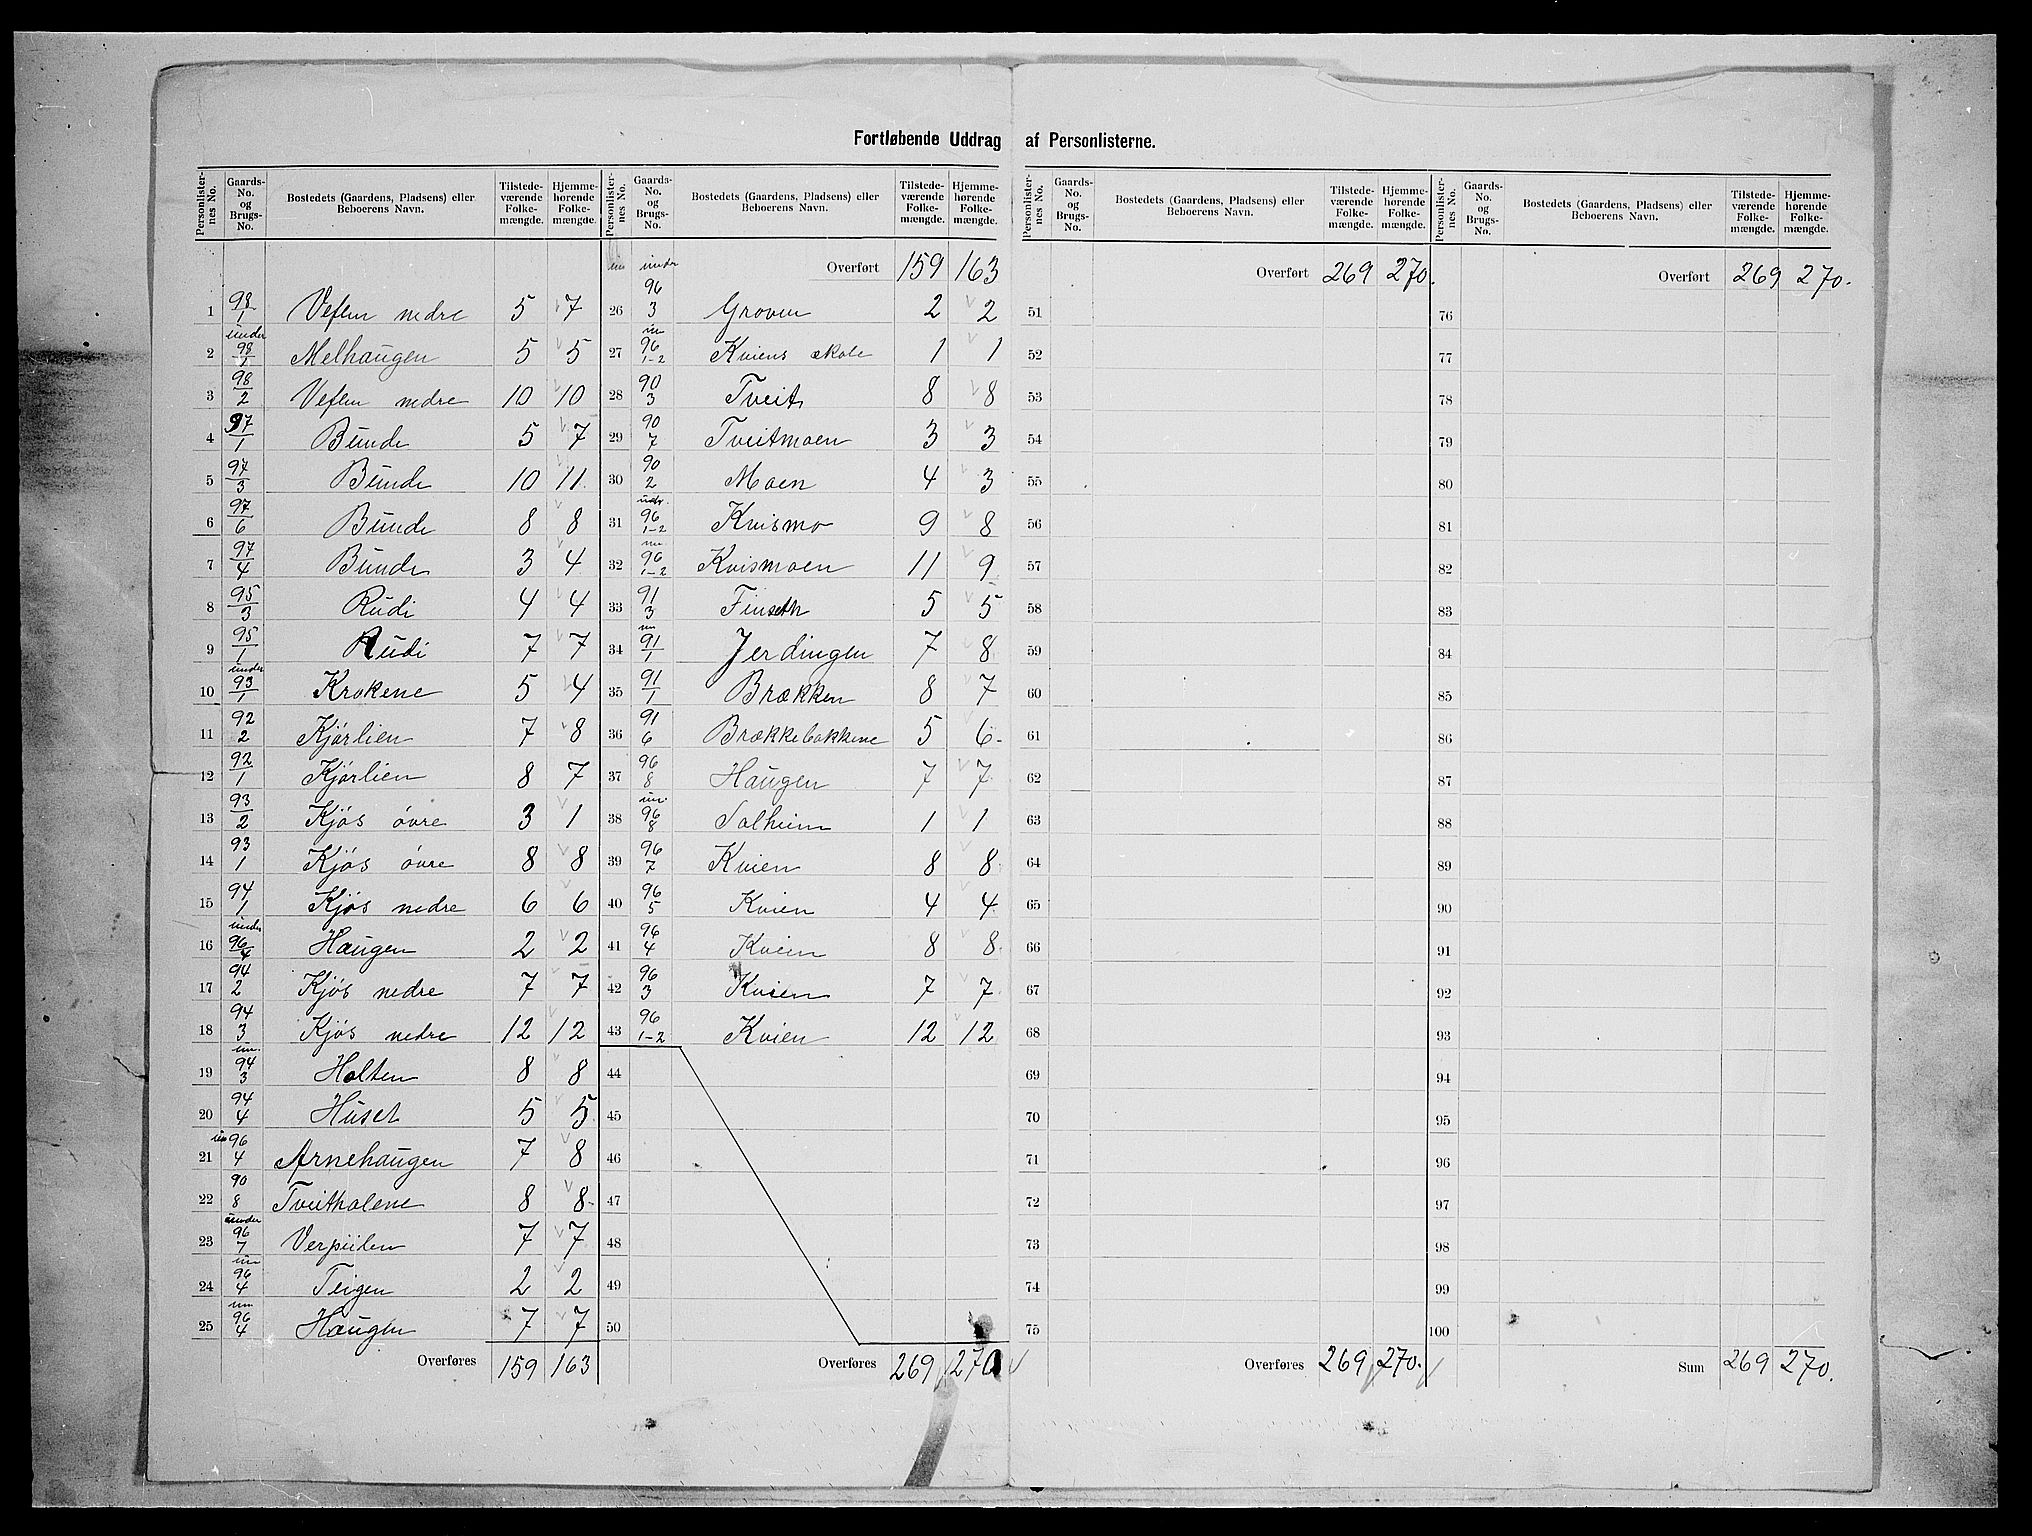 Fortløbende Uddrag af Personlisterne.
Personlister-nes No. | Gaards-No. og Brugs-No. | Bostedets (Gaardens, Pladsens) eller Beboerens Navn. | Tilstede-værende Folke-mængde. | Hjemme-hørende Folke-mængde.
1 | 98/1 | nedre | 5 | 7
2 | under 98/1 | Melhaugen | 5 | 5
3 | 98/2 | nedre | 10 | 10
4 | 97/1 | Bunde | 5 | 7
5 | 97/3 | Bunde | 10 | 11
6 | 97/6 | Bunde | 8 | 8
7 | 97/4 | Bunde | 3 | 4
8 | 95/3 | Rudi | 4 | 4
9 | 95/1 | Rudi | 7 | 7
10 | under 93/1 | Krokene | 5 | 4
11 | 92/2 | Kjørlien | 7 | 8
12 | 92/1 | Kjørlien | 8 | 7
13 | 93/2 | Kjøs øvre | 3 | 1
14 | 93/1 | Kjøs øvre | 8 | 8
15 | 94/1 | Kjøs nedre | 6 | 6
16 | under 96/4 | Haugen | 2 | 2
17 | 94/2 | Kjøs nedre | 7 | 7
18 | 94/3 | Kjøs nedre | 12 | 12
19 | un. 94/3 | Holten | 8 | 8
20 | 94/4 | Huset | 5 | 5
21 | un 96/4 | Arnehaugen | 7 | 8
22 | 90/8 | Tveitholene | 8 | 8
23 | under 96/7 | 7 | 7
24 | un 96/4 | Teigen | 2 | 2
25 | un 96/4 | Haugen | 7 | 7
Overføres 159 163
Personlister-nes No. | Gaards-No. og Brugs-No. | Bostedets (Gaardens, Pladsens) eller Beboerens Navn. | Tilstede-værende Folke-mængde. | Hjemme-hørende Folke-mængde.
Overført 159 163
26 | under 96/3 | Groven | 2 | 2
27 | un 96/1-2 | Kviens skole | 1 | 1
28 | 90/3 | Tveit | 8 | 8
29 | 90/7 | Tveitmoen | 3 | 3
30 | 90/2 | Moen | 4 | 3
31 | 96/1-2 | Kvismo | 9 | 8
32 | un. 96/1-2 | Kvismoen | 11 | 9
33 | 91/3 | Finseth | 5 | 5
34 | un 91/1 | Jerdingen | 7 | 8
35 | 91/1 | Brækken | 8 | 7
36 | 91/6 | Brækkebakkene | 5 | 6
37 | 96/8 | Haugen | 7 | 7
38 | un. 96/8 | Solheim | 1 | 1
39 | 96/7 | Kvien | 8 | 8
40 | 96/5 | Kvien | 4 | 4
41 | 96/4 | Kvien | 8 | 8
42 | 96/3 | Kvien | 7 | 7
43 | 96/1-2 | Kvien | 12 | 12
44
45
46
47
48
49
50
Overføres 269 270
Personlister-nes No. | Gaards-No. og Brugs-No. | Bostedets (Gaardens, Pladsens) eller Beboerens Navn. | Tilstede-værende Folke-mængde. | Hjemme-hørende Folke-mængde.
Overført 269 270.
51
52
53
54
55
56
57
58
59
60
61
62
63
64
65
66
67
68
69
70
71
72
73
74
75
Overføres 269 270.
Personlister-nes No. | Gaards-No. og Brugs-No. | Bostedets (Gaardens, Pladsens) eller Beboerens Navn. | Tilstede-værende Folke-mængde. | Hjemme-hørende Folke-mængde.
Overført 269 270.
76
77
78
79
80
81
82
83
84
85
86
87
88
89
90
91
92
93
94
95
96
97
98
99
100
Sum 269 270.